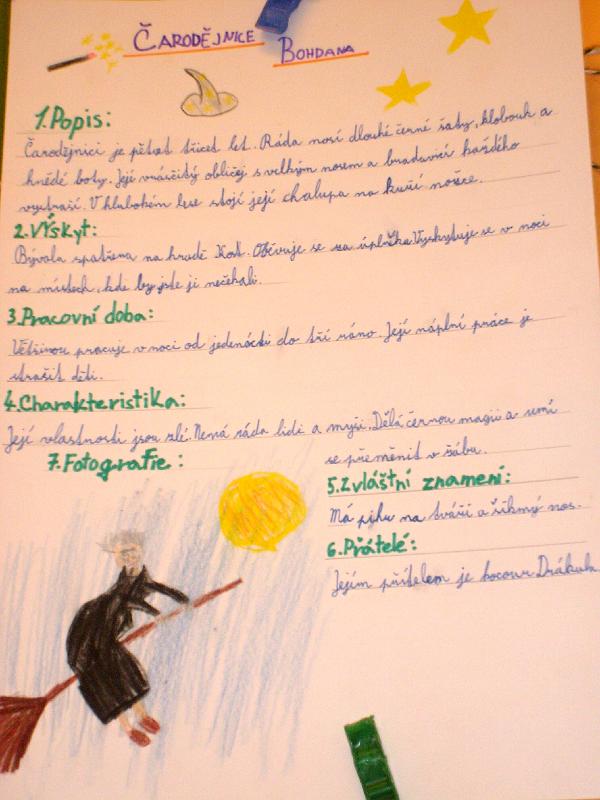 Čarodějnice
Bohdana
1. Popis:
Čarodějnici je pětset třicet let. Ráda nosí dlouhé černé šaty, klobouk a
hnědé boty. Její vrásčitý obličej s velkým nosem a bradavicí každého
vystraší. V hlubokém lese stojí její chalupa na kuří nožce.
2. Výskyt:
Bývala spatřena na hradě Kost. Objevuje se za úplňku. Vyskytuje se v noci
na místech, kde by jste ji nečekali.
3. Pracovní doba:
Většinou pracuje v noci od jedenácti do tří ráno. Její náplní práce je
strašit děti.
4. Charakteristika:
Její vlastnosti jsou zlé. Nemá ráda lidi a myši. Dělá černou magii a umí
se přeměnit v žábu.
5. Zvláštní znamení:
Má pihu na tváři a šikmý nos.
6. Přátelé:
Jejím přítelem je kocour Drákula.
7. Fotografie: